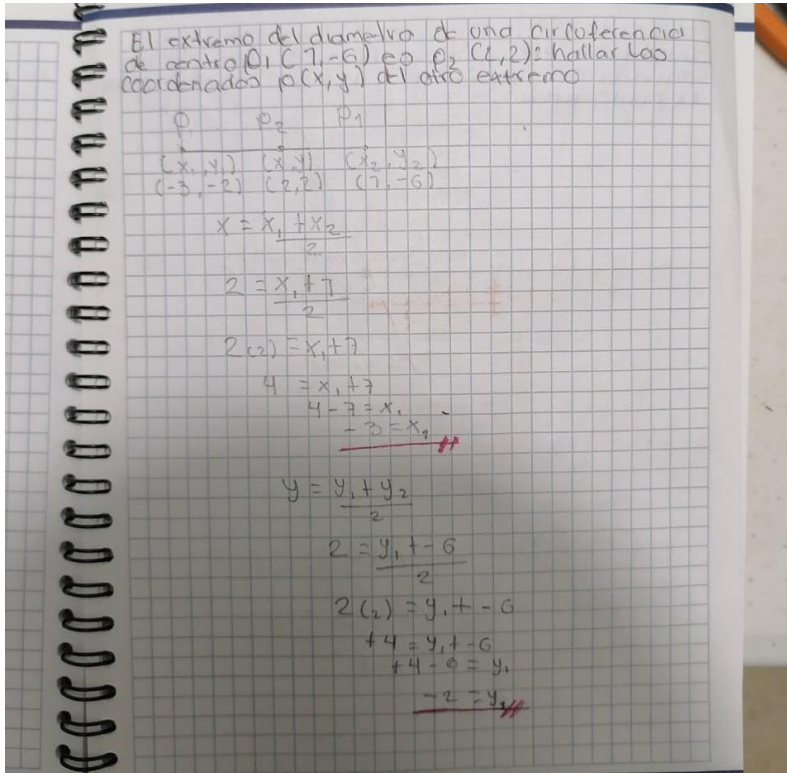 El extremo del diametro de una circuferencia
de centro P₁ (7,-6) es P₂ (2,2): hallar las
coordenadas P(x,y) del otro extremo
P P₂ P₁
(x₁,y₁) (x,y) (x₂,y₂)
(-3,-2) (2,2) (7,-6)
x = x₁ + x₂
2
2 = x₁ + 7
2
2(2) = x₁+7
4 = x₁+7
4-7 = x₁
-3 = x₁
y = y₁ + y₂
2
2 = y₁ + - 6
2
2(2) = y₁ + - 6
+4 = y₁ + - 6
+4 - 6 = y₁
-2 = y₁